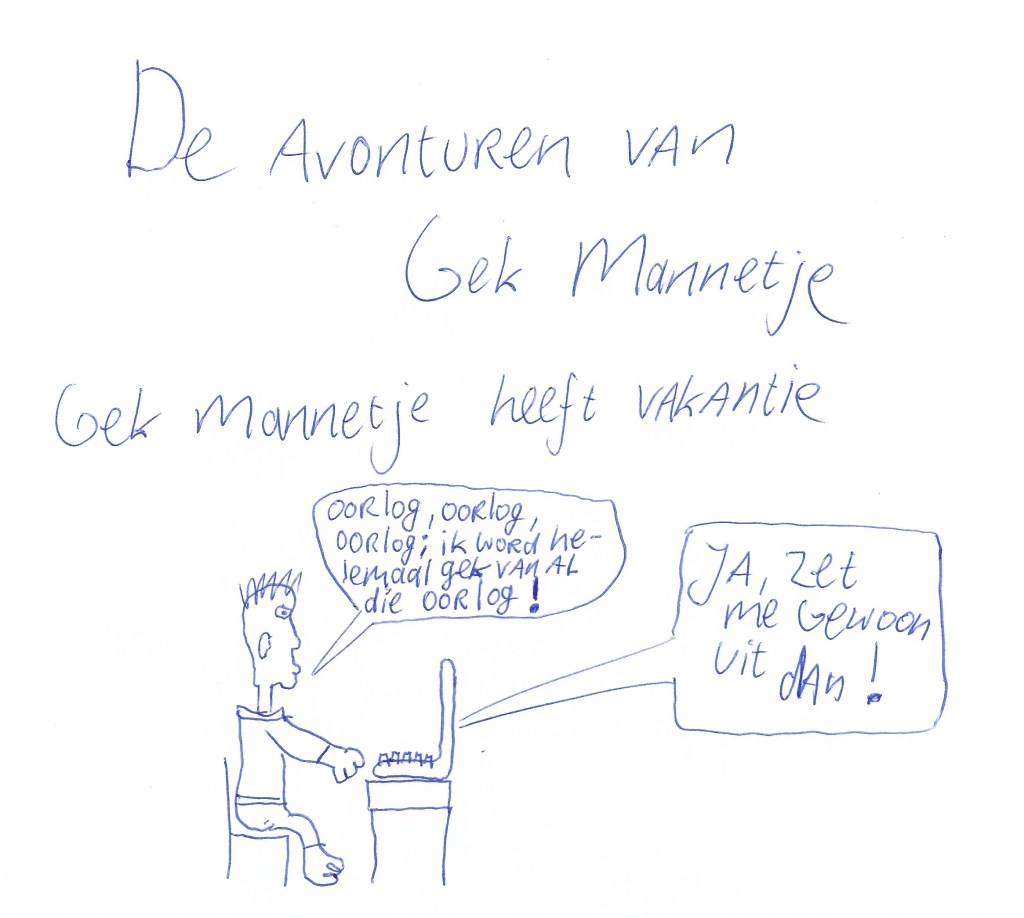 De Avonturen van
Gek Mannetje
Gek Mannetje heeft vakantie
OORlog, OORlog,
OORlog; ik WORD he-
lemaal gek VAN AL
die OORlog!
JA, zet
me Gewoon
uit dan!